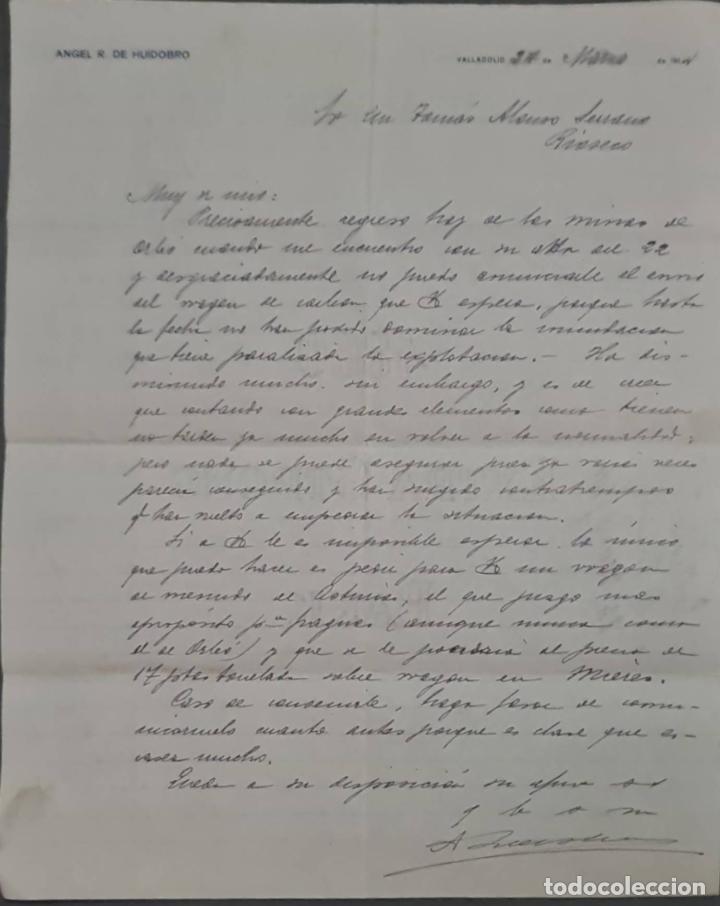 ANGEL R. DE HUIDOBRO
VALLADOLID 24 de Marzo de 191
Sr Dn Tomás Alonso Serrano
Rioseco
Muy sr mio:
Precisamente regreso hoy de las minas de
Orbó cuando me encuentro con su atta del 22
y desgraciadamente no puedo anunciarle el envio
del wagon de carbon que V. espera, porque hasta
la fecha no han podido dominar la inundacion
que tiene paralizada la explotacion. — Ha dis-
minuido mucho sin embargo, y es de creer
que contando con grandes elementos como tienen
no tarden ya mucho en volver a la normalidad;
pero nada se puede asegurar pues ya varias veces
parecía conseguido y han surgido contratiempos
q han vuelto a empeorar la situacion.
Si a V. le es imposible esperar lo único
que puedo hacer es pedir para V. un wagon
de menudo de Asturias, el que juzgo mas
apropósito pa fraguas (aunque nunca como
el de Orbó) y que se le pondria al precio de
17 ptas tonelada sobre wagon en Mieres.
Caso de convenirle, haga favor de comu-
nicarmelo cuanto antes porque es clase que es-
casea mucho.
Queda a su disposición su afmo s s
q b s m
todocoleccion.net